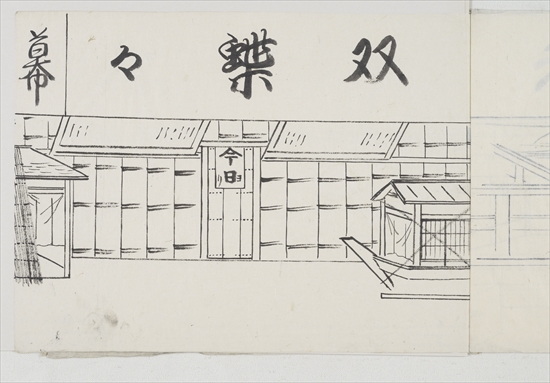 双蝶々
幕
今日